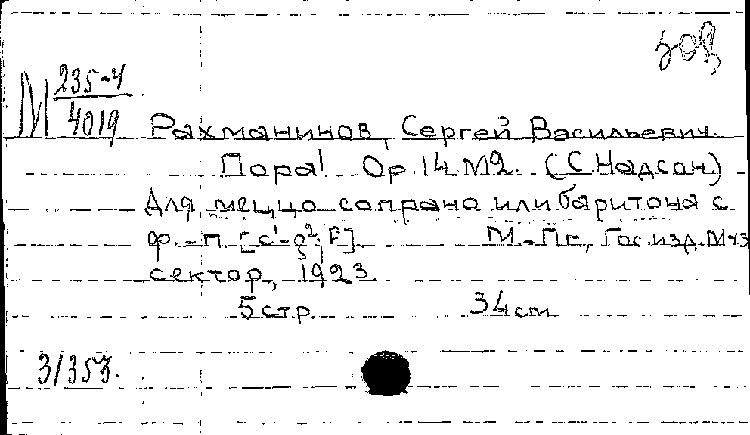 М 235-4
4019
Рахманинов, Сергей Васильевич.
Пора! Ор.14 №2. (С. Надсон)
Для меццо сопрано или баритона с
ф.-п. [c¹-g²; F]. М.-Пг., Гос. изд. Муз
сектор, 1923.
5 стр. 34 см
3/353.